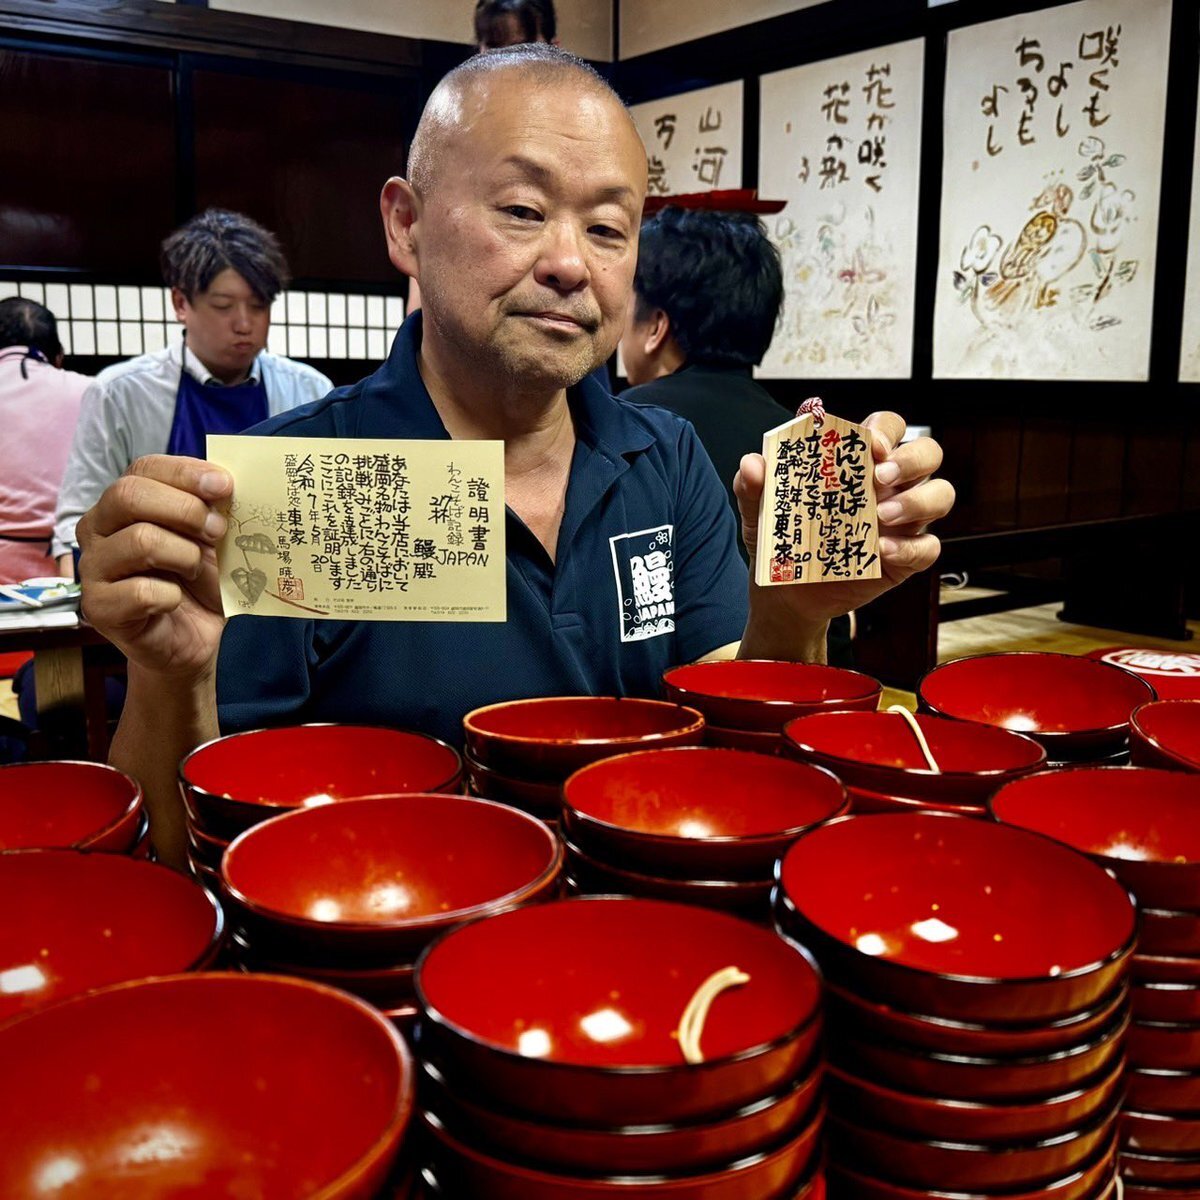 證明書
わんこそば記録
217杯
鰻JAPAN殿
あなたは当店において
盛岡名物わんこそばに
挑戦しみごとに右の通り
の記録を達成しました
ここにこれを証明します
令和7年5月20日
盛岡そば処東家
主人馬場暁彦
わんこそば217杯!
みごとに平らげました。
立派です。
令和7年5月20日
盛岡そば処東家
鰻
JAPAN
山河
万歳
花が咲く
花が散る
咲くも
よし
ちるも
よし